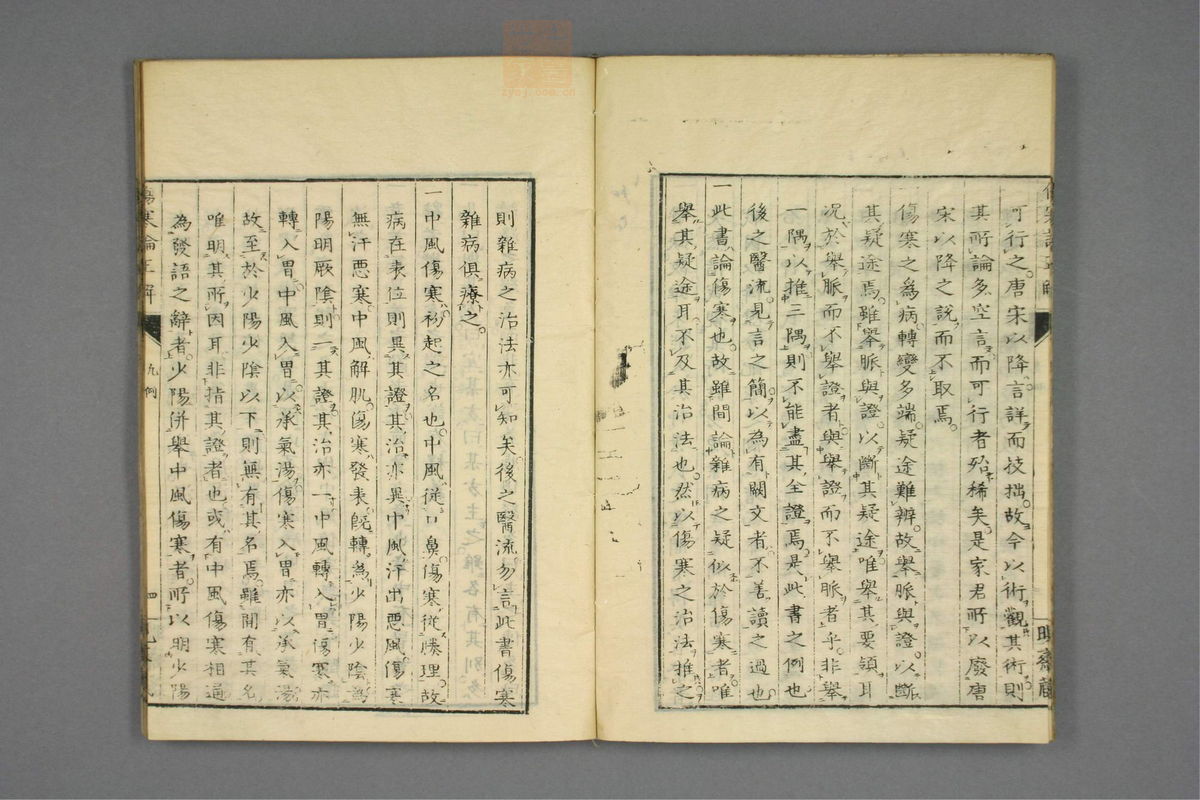 可行之唐宋以降言詳而技拙故今以術觀其術則
其所論多空言而可行者殆稀矣是家君所以廢唐
宋以降之説而不取焉
傷寒之為病轉變多端疑途難辨故舉脈與證以斷
其疑途焉雖舉脈與證以斷其疑途唯舉其要領耳
況於舉脈而不舉證者與舉證而不舉脈者乎非舉
一隅以推三隅則不能盡其全證焉是此書之例也
後之醫流見言之簡以為有闕文者不善讀之過也
一此書論傷寒也故雖間論雜病之疑似於傷寒者唯
舉其疑途耳不及其治法也然以傷寒之治法推之
則雜病之治法亦可知矣後之醫流勿言此書傷寒
雜病俱療之
一中風傷寒初起之名也中風從口鼻傷寒從腠理故
病在表位則異其證其治亦異中風汗出惡風傷寒
無汗惡寒中風解肌傷寒發表既轉為少陽少陰為
陽明厥陰則一其證其治亦一中風轉入胃傷寒亦
轉入胃中風入胃以承氣湯傷寒入胃亦以承氣湯
故至於少陽少陰以下則無有其名焉雖間有其名
唯明其所因耳非指其證者也或有中風傷寒相通
為發語之辭者少陽併舉中風傷寒者所以明少陽
傷寒論正解
凡例
四
zysj.com.cn